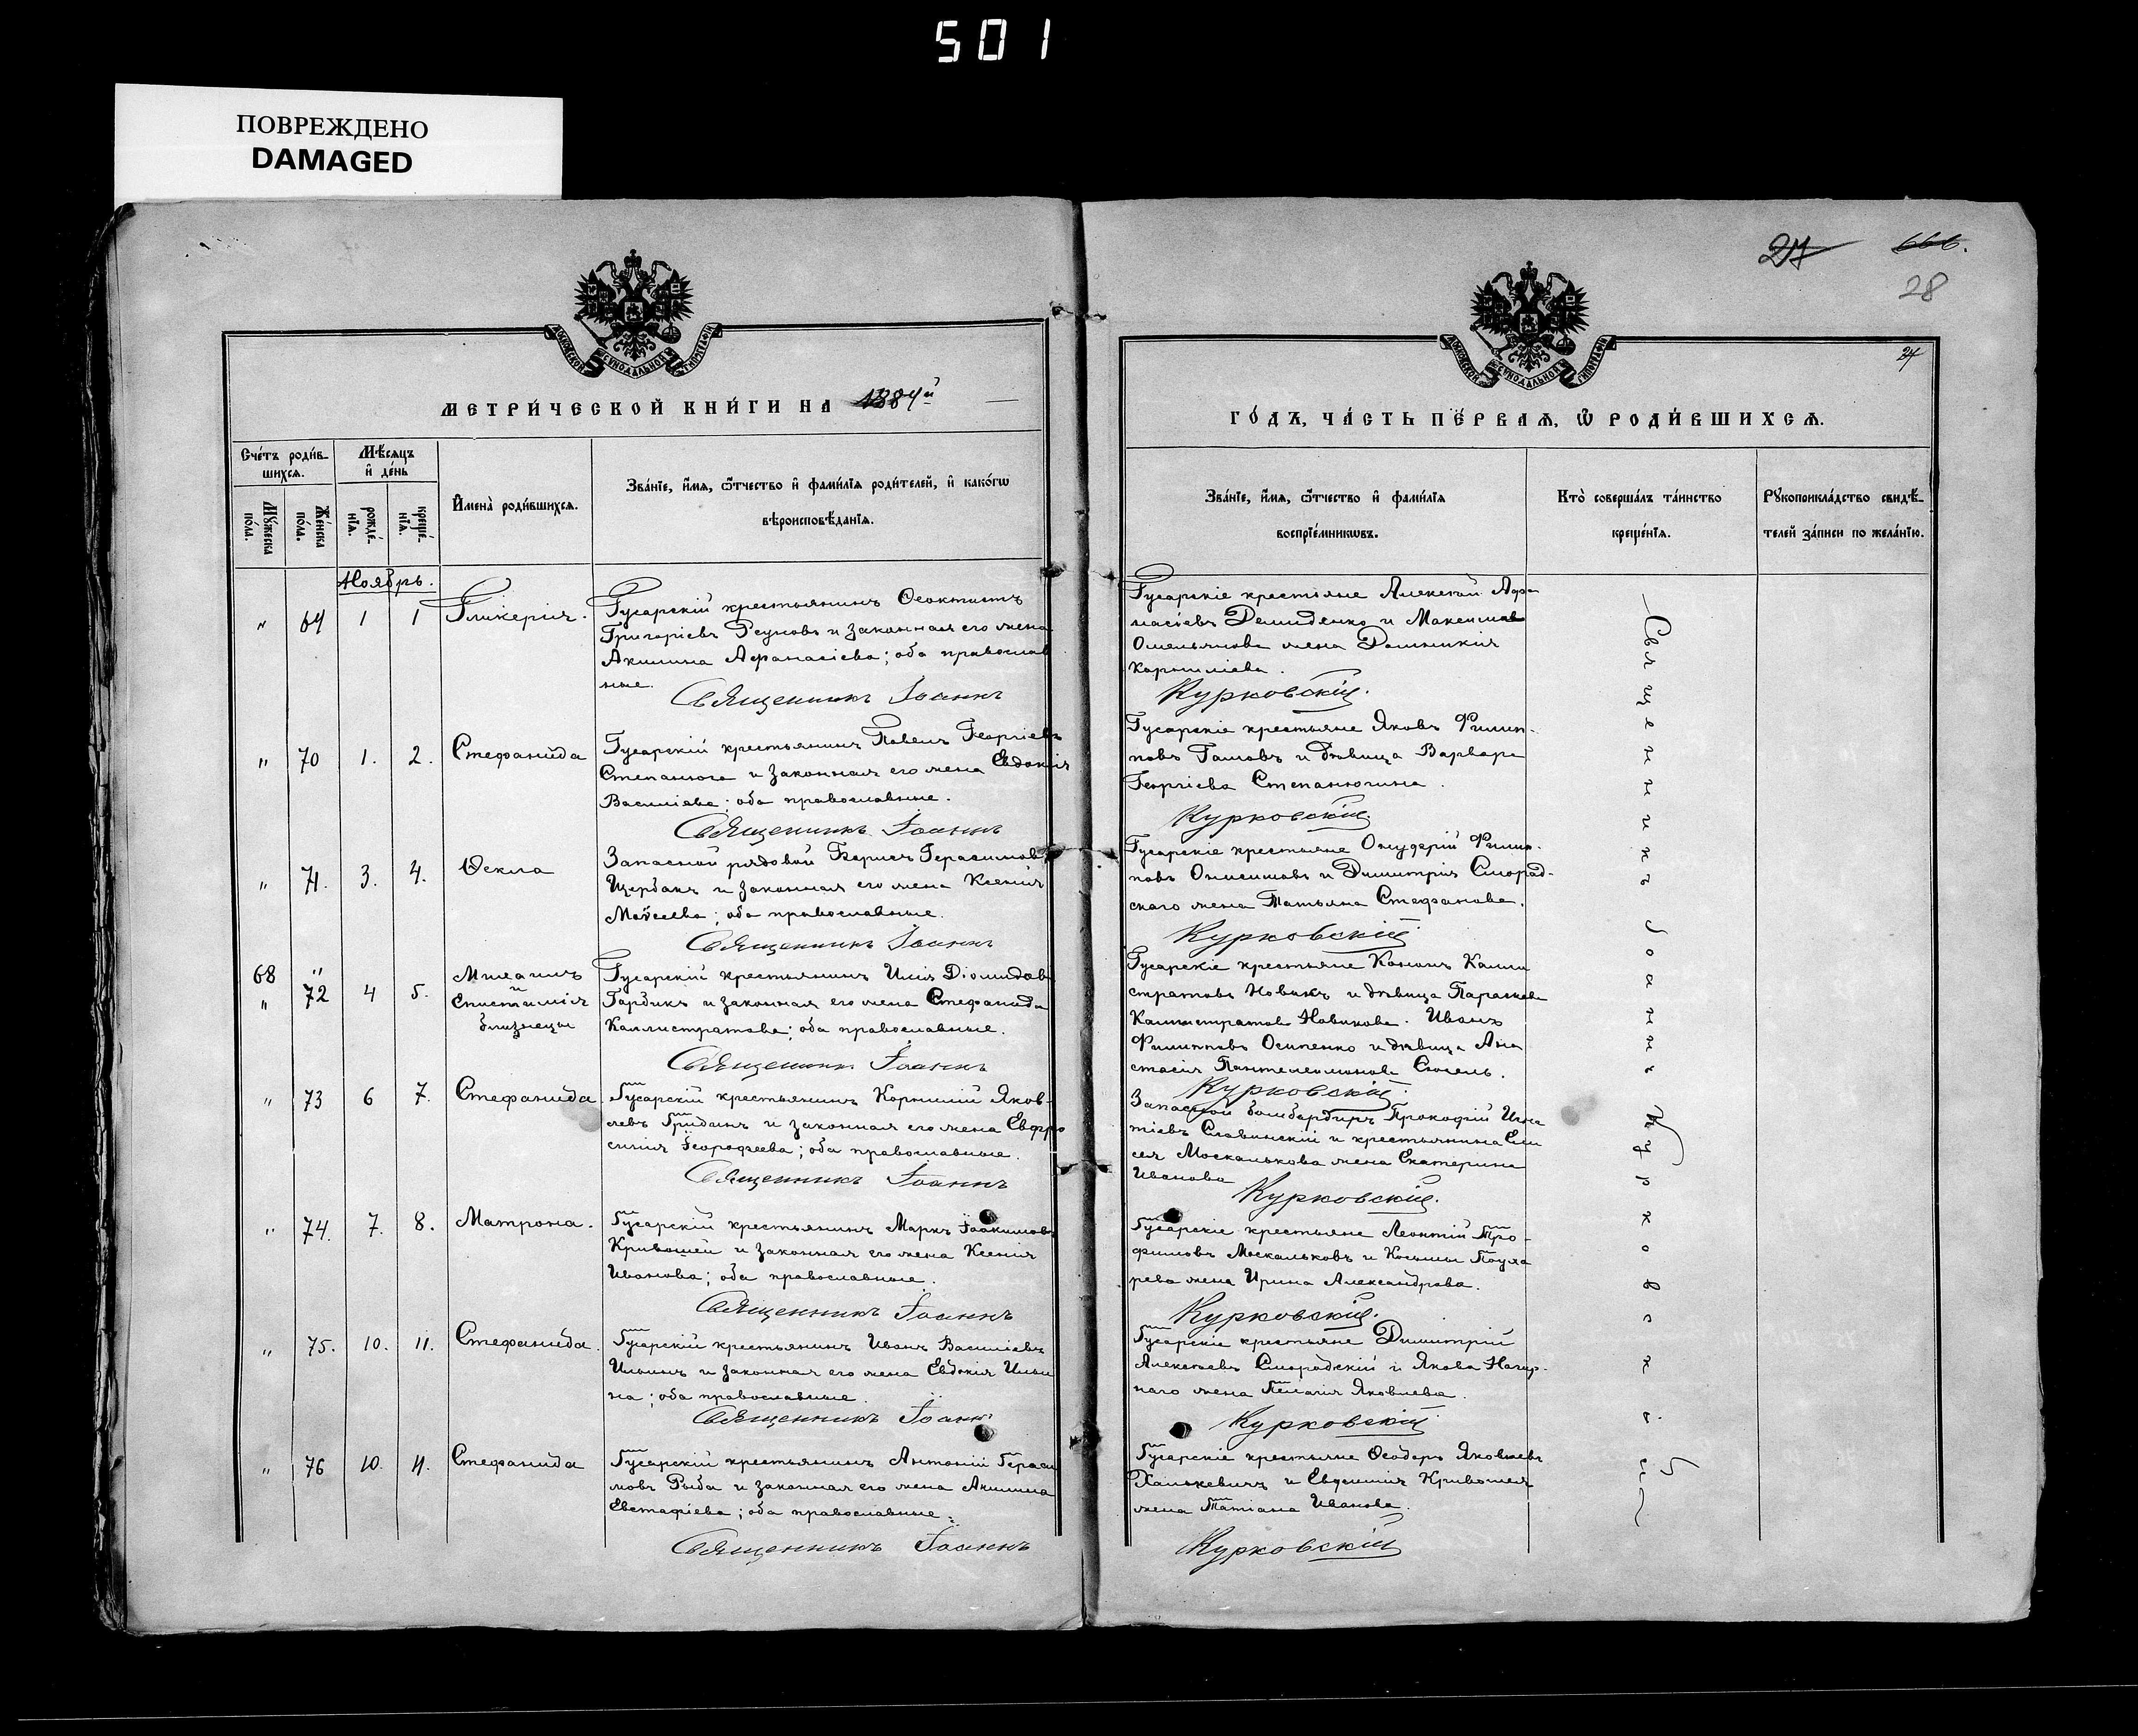 501
ПОВРЕЖДЕНО
DAMAGED
27 666.
28
27
МЕТРИ́ЧЕСКОЙ КНИ́ГИ НА 1884й
ГО́ДЪ, ЧА́СТЬ ПЕ́РВАЯ, Ѿ РОДИ́ВШИХСЯ.
Сче́тъ роди́в-
шихся.
Мѣ́сяцъ
и҆ де́нь
Мꙋ́жеска
по́ла.
Же́нска
по́ла.
рожде́-
нїя.
креще́-
нїя.
И҆мена̀ роди́вшихся.
Зва́нїе, и҆́мя, ѻ҆́тчество и҆ фами́лїя роди́телей, и҆ како́гѡ
вѣроисповѣ́данїя.
Зва́нїе, и҆́мя, ѻ҆́тчество и҆ фами́лїя
воспрїе́мникѡвъ.
Кто̀ соверша́лъ та́инство
креще́нїя.
Рꙋкоприкла́дство свидѣ́-
телей за́писи по жела́нїю.
Ноябрь.
" 69 1 1 Гликерія.
Гусарскій крестьянинъ Ѳеоктистъ
Григоріевъ и законная его жена
Акилина Афанасіева; оба православ
ные.
Священникъ Іоаннъ
Гусарскіе крестьяне Алексѣй Афа
насіевъ Демиденко и Максима
Омельянова жена Домникія
Корниліева.
Курковскій.
" 70 1. 2. Стефанида
Гусарскій крестьянинъ Павелъ Георгіевъ
Степанюга и законная его жена Евдокія
Василіева; оба православные.
Священникъ Іоаннъ
Гусарскіе крестьяне Яковъ Филип-
повъ и дѣвица Варвара
Георгіева Степанюгина.
Курковскій.
" 71. 3. 4. Ѳекла
Запасной рядовой Борисъ Герасимовъ
Щербакъ и законная его жена Ксенія
Моѵсеева; оба православные.
Священникъ Іоаннъ
Гусарскіе крестьяне Филип-
повъ Онисимовъ и Димитрія Смород-
скаго жена Татьяна Стефанова.
Курковскій
68 " Михаилъ
" 72 4 5. и
близнецы
Гусарскій крестьянинъ Илія Діомидовъ
Гордикъ и законная его жена Стефанида
Каллистратова; оба православные.
Священникъ Іоаннъ
Гусарскіе крестьяне Кононъ Калли
стратовъ Новикъ и дѣвица Параскева
Каллистратова Новикова. Иванъ
Филипповъ Осипенко и дѣвица Ана
стасія Пантелеимонова
Курковскій.
" 73 6 7. Стефанида
Гусарскій крестьянинъ Корнилій Яков-
левъ Гридинъ и законная его жена Евфро
синія; оба православные.
Священникъ Іоаннъ
Запасной бомбардиръ Прокофій Игна
тіевъ Славинскій и крестьянина Ели
сея Москалькова жена Екатерина
Иванова
Курковскій.
" 74. 7. 8. Матрона.
Гусарскій крестьянинъ Маркъ Іоакимовъ
Кривошей и законная его жена Ксенія
Иванова; оба православные.
Священникъ Іоаннъ
Гусарскіе крестьяне Леонтій Тро-
фимовъ Москальковъ и Косьмы
жена Ирина Александрова.
Курковскій.
" 75. 10. 11. Стефанида.
Гусарскій крестьянинъ Иванъ Василіевъ
Ильинъ и законная его жена Евдокія Ильи
на; оба православные.
Священникъ Іоаннъ
Гусарскіе крестьяне Димитрій
Алексѣевъ Смородскій и Якова Нагор-
наго жена Пелагія Яковлева.
Курковскій
" 76 10. 11. Стефанида
Гусарскій крестьянинъ Антоній Гераси
мовъ Рыба и законная его жена Акилина
Евстафіева; оба православные.
Священникъ Іоаннъ
Гусарскіе крестьяне Ѳеодоръ Яковлевъ
Ханькевичъ и Евфимія Кривошея
жена Татіана Иванова.
Курковскій
Священникъ Іоаннъ Курковскій